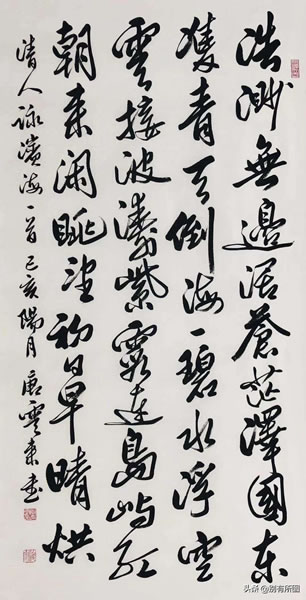 浩渺無邊濶蒼茫澤國東
雙青天倒海一碧水浮空
雲接波濤紫霞連島嶼紅
朝來闲眺望初日早晴烘
清人詠濱海一首己亥陽月唐雲來書
头条 @别有所圖